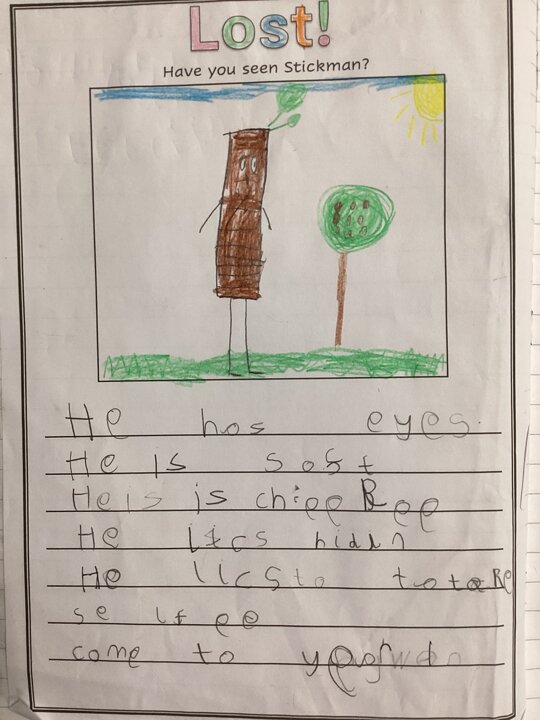 Lost!
Have you seen Stickman?
He has eyes.
He is soft
He is is chiee Ree
He lics hidin
He lics to totaRe
se lf ee
come to